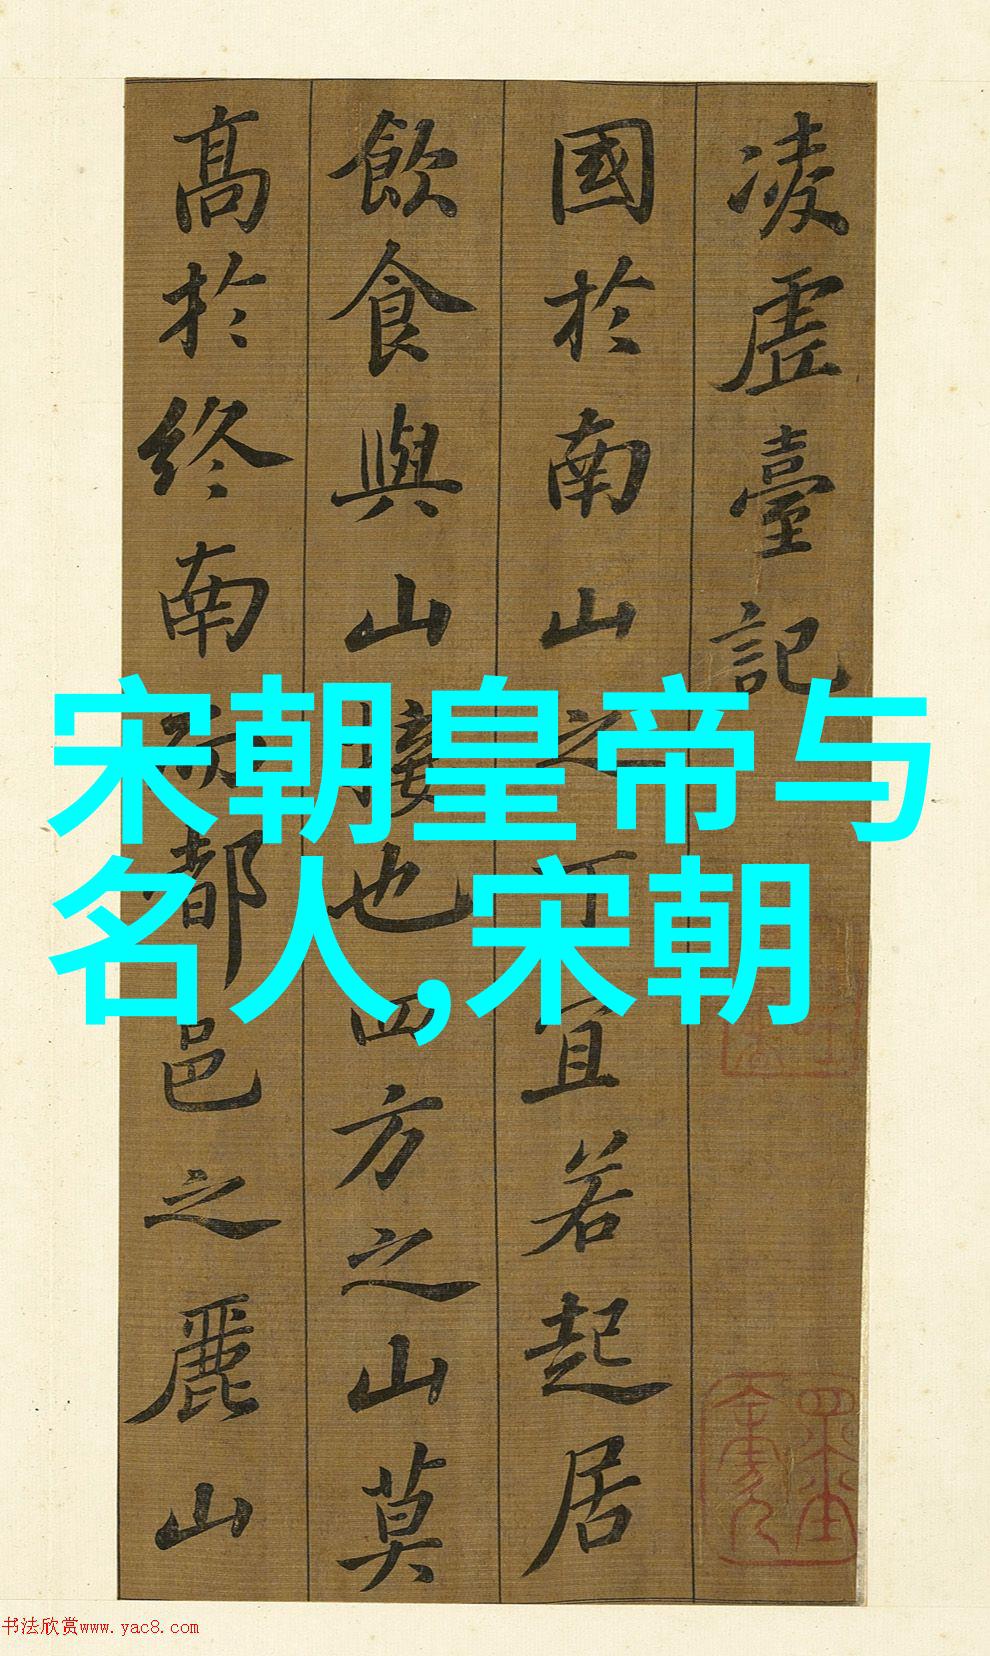 凌虛臺記
國於南山之下宜若起居
飲食與山接也四方之山莫
高於終南而都邑之麗山
宋朝皇帝与
名人,宋朝
书法欣赏www.yac8.com